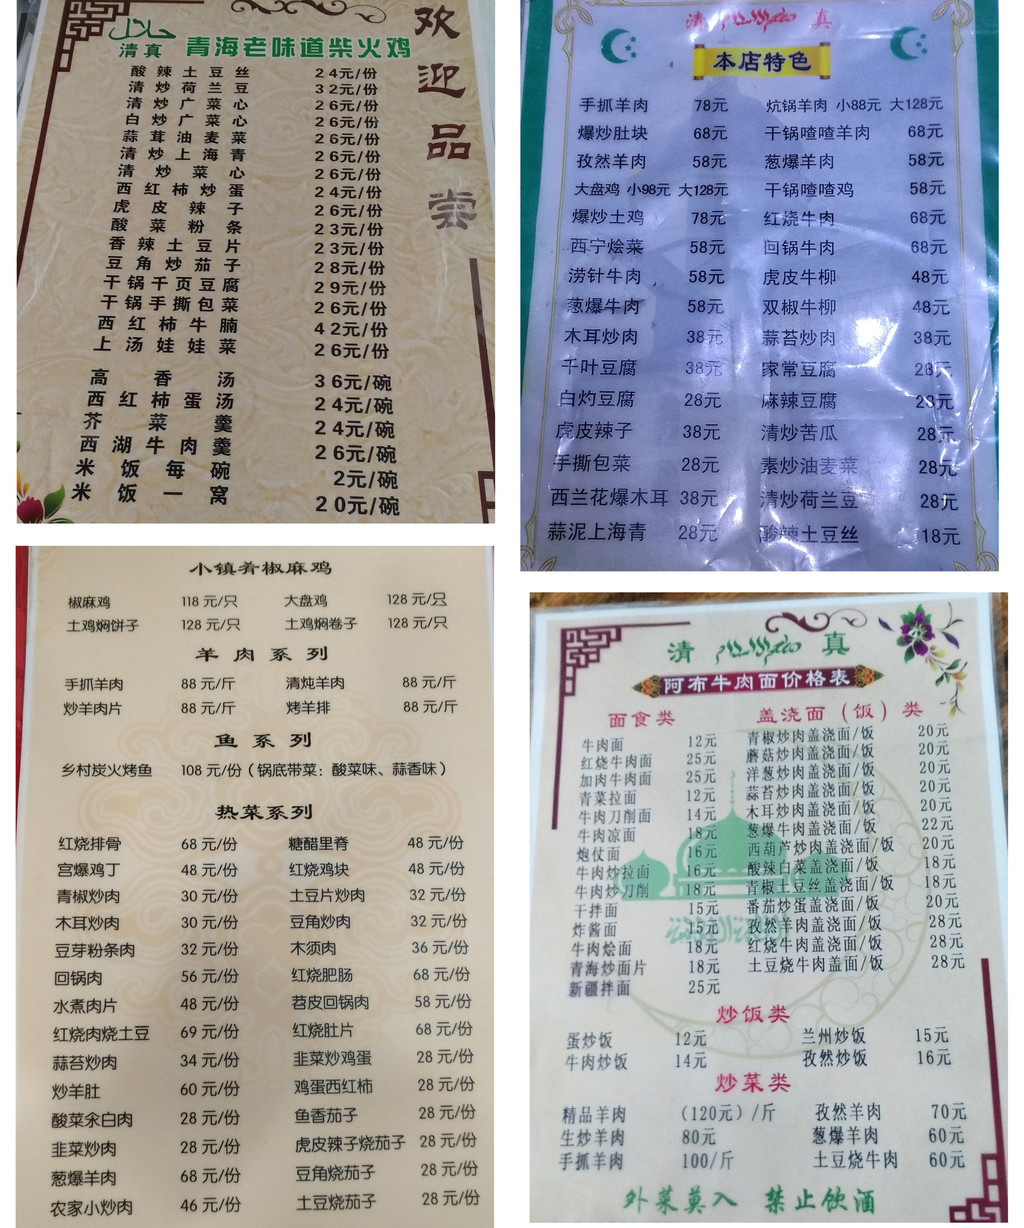 欢迎品尝
清真 青海老味道柴火鸡
酸辣土豆丝 24元/份
清炒荷兰豆 32元/份
清炒广菜心 26元/份
白炒广菜心 26元/份
蒜茸油麦菜 26元/份
清炒上海青 26元/份
清炒菜心 26元/份
西红柿炒蛋 24元/份
虎皮辣子 26元/份
酸菜粉条 23元/份
香辣土豆片 23元/份
豆角炒茄子 28元/份
干锅千页豆腐 29元/份
干锅手撕包菜 26元/份
西红柿牛腩 42元/份
上汤娃娃菜 26元/份
高香汤 36元/碗
西红柿蛋汤 24元/碗
芥菜羹 24元/碗
西湖牛肉羹 26元/碗
米饭每碗 2元/碗
米饭一窝 20元/碗
清 真
本店特色
手抓羊肉 78元 炕锅羊肉 小88元 大128元
爆炒肚块 68元 干锅喳喳羊肉 68元
孜然羊肉 58元 葱爆羊肉 58元
大盘鸡 小98元 大128元 干锅喳喳鸡 58元
爆炒土鸡 78元 红烧牛肉 68元
西宁烩菜 58元 回锅牛肉 68元
涝针牛肉 58元 虎皮牛柳 48元
葱爆牛肉 58元 双椒牛柳 48元
木耳炒肉 38元 蒜苔炒肉 38元
千叶豆腐 38元 家常豆腐 28元
白灼豆腐 28元 麻辣豆腐 28元
虎皮辣子 38元 清炒苦瓜 28元
手撕包菜 28元 素炒油麦菜 28元
西兰花爆木耳 38元 清炒荷兰豆 28元
蒜泥上海青 28元 酸辣土豆丝 18元
小镇肴椒麻鸡
椒麻鸡 118 元/只 大盘鸡 128 元/只
土鸡焖饼子 128 元/只 土鸡焖卷子 128 元/只
羊肉系列
手抓羊肉 88 元/斤 清炖羊肉 88 元/斤
炒羊肉片 88 元/斤 烤羊排 88 元/斤
鱼系列
乡村炭火烤鱼 108 元/份（锅底带菜：酸菜味、蒜香味）
热菜系列
红烧排骨 68 元/份 糖醋里脊 48 元/份
宫爆鸡丁 48 元/份 红烧鸡块 48 元/份
青椒炒肉 30 元/份 土豆片炒肉 32 元/份
木耳炒肉 30 元/份 豆角炒肉 32 元/份
豆芽粉条肉 32 元/份 木须肉 36 元/份
回锅肉 56 元/份 红烧肥肠 68 元/份
水煮肉片 48 元/份 苕皮回锅肉 58 元/份
红烧肉烧土豆 69 元/份 红烧肚片 68 元/份
蒜苔炒肉 34 元/份 韭菜炒鸡蛋 28 元/份
炒羊肚 60 元/份 鸡蛋西红柿 28 元/份
酸菜汆白肉 28 元/份 鱼香茄子 28 元/份
韭菜炒肉 28 元/份 虎皮辣子烧茄子 28 元/份
葱爆羊肉 68 元/份 豆角烧茄子 28 元/份
农家小炒肉 46 元/份 土豆烧茄子 28 元/份
清 真
阿布牛肉面价格表
面食类 盖浇面（饭）类
牛肉面 12元 青椒炒肉盖浇面/饭 20元
红烧牛肉面 25元 蘑菇炒肉盖浇面/饭 20元
加肉牛肉面 25元 洋葱炒肉盖浇面/饭 20元
青菜拉面 12元 蒜苔炒肉盖浇面/饭 20元
牛肉刀削面 14元 木耳炒肉盖浇面/饭 20元
牛肉凉面 18元 葱爆牛肉盖浇面/饭 22元
炮仗面 16元 西葫芦炒肉盖浇面/饭 20元
牛肉炒拉面 16元 酸辣白菜盖浇面/饭 18元
牛肉炒刀削 18元 青椒土豆丝盖浇面/饭 18元
干拌面 15元 番茄炒蛋盖浇面/饭 20元
炸酱面 15元 孜然羊肉盖浇面/饭 28元
牛肉烩面 18元 红烧牛肉盖浇面/饭 28元
青海炒面片 18元 土豆烧牛肉盖面/饭 28元
新疆拌面 25元
炒饭类
蛋炒饭 12元 兰州炒饭 15元
牛肉炒饭 14元 孜然炒饭 16元
炒菜类
精品羊肉 （120元）/斤 孜然羊肉 70元
生炒羊肉 80元 葱爆羊肉 60元
手抓羊肉 100/斤 土豆烧牛肉 60元
外菜莫入 禁止饮酒